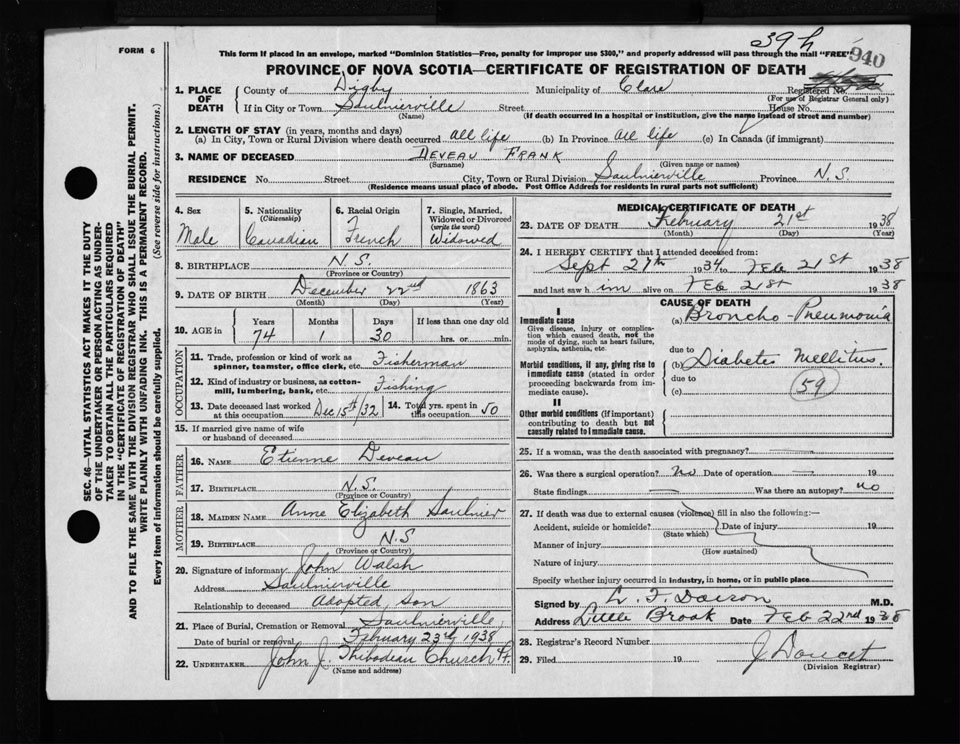 39 h
940
FORM 6
This form if placed in an envelope, marked "Dominion Statistics—Free, penalty for improper use $300," and properly addressed will pass through the mail "FREE"
PROVINCE OF NOVA SCOTIA—CERTIFICATE OF REGISTRATION OF DEATH
Registered No.
(For use of Registrar General only)
1. PLACE OF DEATH
County of Digby Municipality of Clare
If in City or Town Saulnierville Street House No.
(Name) (If death occurred in a hospital or institution, give the name instead of street and number)
2. LENGTH OF STAY (in years, months and days)
(a) In City, Town or Rural Division where death occurred all life (b) In Province all life (c) In Canada (if immigrant)
3. NAME OF DECEASED DEVEAU FRANK
(Surname) (Given name or names)
RESIDENCE No. Street City, Town or Rural Division Saulnierville Province N.S.
(Residence means usual place of abode. Post Office Address for residents in rural parts not sufficient)
4. Sex Male
5. Nationality (Citizenship) Canadian
6. Racial Origin French
7. Single, Married, Widowed or Divorced (write the word) Widowed
8. BIRTHPLACE N.S.
(Province or Country)
9. DATE OF BIRTH December 22nd 1863
(Month) (Day) (Year)
10. AGE in Years Months Days If less than one day old
74 1 30 hrs. or min.
OCCUPATION
11. Trade, profession or kind of work as spinner, teamster, office clerk, etc. Fisherman
12. Kind of industry or business, as cotton-mill, lumbering, bank, etc. Fishing
13. Date deceased last worked at this occupation Dec 15th/32 14. Total yrs. spent in this occupation 50
15. If married give name of wife or husband of deceased
FATHER
16. NAME Etienne Deveau
17. BIRTHPLACE N.S.
(Province or Country)
MOTHER
18. MAIDEN NAME Anne Elizabeth Saulnier
19. BIRTHPLACE N.S
(Province or Country)
20. Signature of informant John Walsh
Address Saulnierville
Relationship to deceased Adopted son
21. Place of Burial, Cremation or Removal Saulnierville
Date of burial or removal February 23rd 1938
22. UNDERTAKER John J. Thibodeau Church Pt.
(Name and address)
MEDICAL CERTIFICATE OF DEATH
23. DATE OF DEATH February 21st 1938
(Month) (Day) (Year)
24. I HEREBY CERTIFY that I attended deceased from:
Sept 27th 1934 to Feb 21st 1938
and last saw him alive on Feb 21st 1938
CAUSE OF DEATH
I
Immediate cause (a) Broncho-Pneumonia
Give disease, injury or complication which caused death, not the mode of dying, such as heart failure, asphyxia, asthenia, etc.
due to
Morbid conditions, if any, giving rise to immediate cause (stated in order proceeding backwards from immediate cause). (b) Diabetes Mellitus.
due to
(c) 59
II
Other morbid conditions (if important) contributing to death but not causally related to immediate cause.
25. If a woman, was the death associated with pregnancy?
26. Was there a surgical operation? no Date of operation — 19
State findings — Was there an autopsy? no
27. If death was due to external causes (violence) fill in also the following:—
Accident, suicide or homicide? Date of injury 19
(State which)
Manner of injury
(How sustained)
Nature of injury
Specify whether injury occurred in industry, in home, or in public place
Signed by M.D.
Address Little Brook Date Feb 22nd 1938
28. Registrar's Record Number
29. Filed 19 J Doucet
(Division Registrar)
SEC. 46—VITAL STATISTICS ACT MAKES IT THE DUTY
OF THE UNDERTAKER OR PERSON ACTING AS UNDER-
TAKER TO OBTAIN ALL THE PARTICULARS REQUIRED
IN THE "CERTIFICATE OF REGISTRATION OF DEATH"
AND TO FILE THE SAME WITH THE DIVISION REGISTRAR WHO SHALL ISSUE THE BURIAL PERMIT.
WRITE PLAINLY WITH UNFADING INK. THIS IS A PERMANENT RECORD.
Every item of information should be carefully supplied. (See reverse side for instructions.)